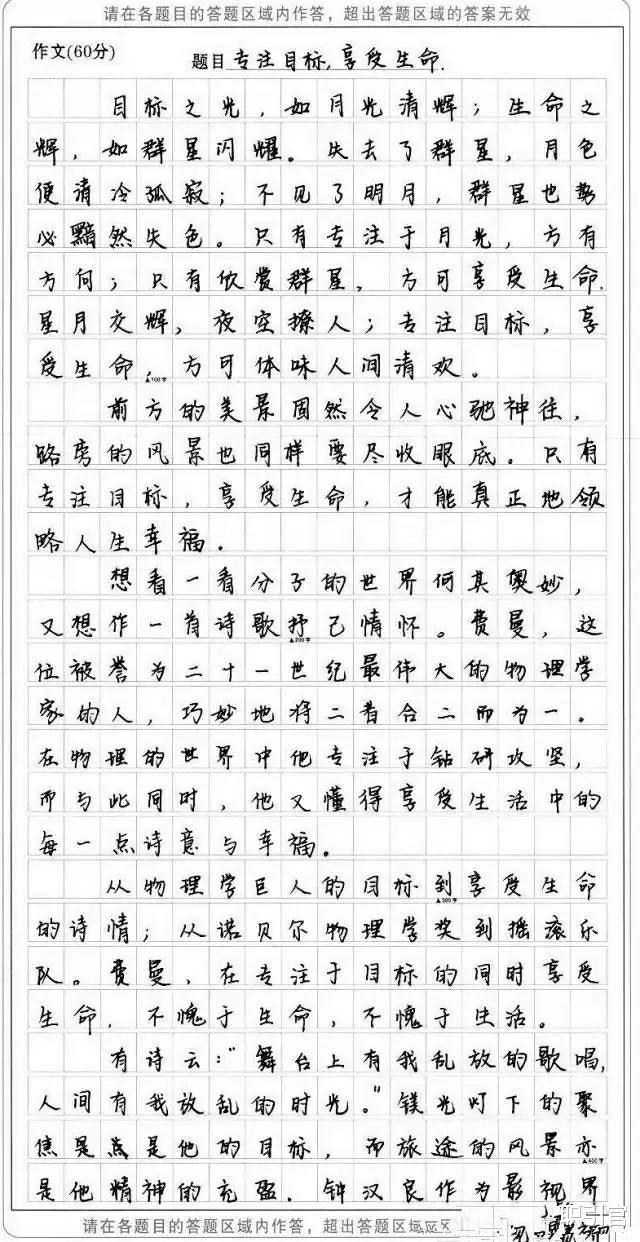 请在各题目的答题区域内作答，超出答题区域的答案无效
作文(60分)
题目 专注目标，享受生命.
目标之光，如月光清辉；生命之
辉，如群星闪耀。失去了群星，月色
便清冷孤寂；不见了明月，群星也势
必黯然失色。只有专注于月光，方有
方向；只有欣赏群星，方可享受生命.
星月交辉，夜空撩人；专注目标，享
受生命，方可体味人间清欢。
▲100字
前方的美景固然令人心驰神往，
路旁的风景也同样要尽收眼底。只有
专注目标，享受生命，才能真正地领
略人生幸福。
想看一看分子的世界何其奥妙，
又想作一首诗歌抒己情怀。费曼，这
▲200字
位被誉为二十一世纪最伟大的物理学
家的人，巧妙地将二者合二而为一。
在物理的世界中他专注于钻研攻坚，
而与此同时，他又懂得享受生活中的
每一点诗意与幸福。
从物理学巨人的目标到享受生命
▲300字
的诗情；从诺贝尔物理学奖到摇滚乐
队。费曼，在专注于目标的同时享受
生命，不愧于生命，不愧于生活。
有诗云：“舞台上有我乱放的歌唱，
人间有我放乱的时光。”镁光灯下的聚
焦是点是他的目标，而旅途的风景亦
▲400字
是他精神的充盈。钟汉良作为影视界
请在各题目的答题区域内作答，超出答题区域的答案无效